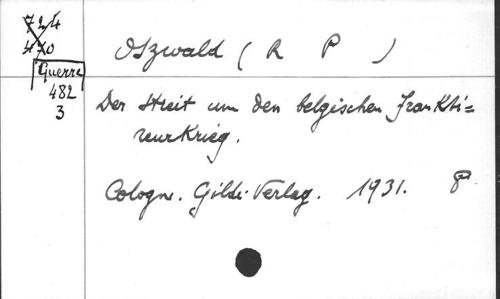 724
470
Guerre
482
3
Oszwald ( R P )
Der Streit um den belgischen Frankti=
reurkrieg.
Cologne. Gilde-Verlag. 1931. 8°